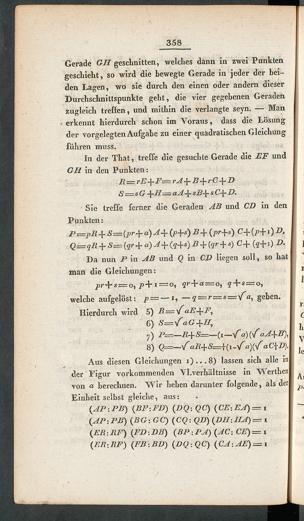 358
Gerade GH geschnitten, welches dann in zwei Punkten
geschieht, so wird die bewegte Gerade in jeder der bei-
den Lagen, wo sie durch den einen oder andern dieser
Durchschnittspunkte geht, die vier gegebenen Geraden
zugleich treffen, und mithin die verlangte seyn. — Man
erkennt hierdurch schon im Voraus, dass die Lösung
der vorgelegten Aufgabe zu einer quadratischen Gleichung
führen muss.
In der That, treffe die gesuchte Gerade die EF und
GH in den Punkten:
R=rE+F=rA+B+rC+D
S=sG+H=aA+sB+sC+D.
Sie treffe ferner die Geraden AB und CD in den
Punkten:
P=pR+S=(pr+a)A+(p+s)B+(pr+s)C+(p+1)D,
Q=qR+S=(qr+a)A+(q+s)B+(qr+s)C+(q+1)D.
Da nun P in AB und Q in CD liegen soll, so hat
man die Gleichungen:
pr+s=0, p+1=0, qr+a=0, q+s=0,
welche aufgelöst: p=—1, —q=r=s=√a, geben.
Hierdurch wird 5) R=√aE+F,
6) S=√aG+H,
7) P=—R+S=—(1—√a)(√aA+B),
8) Q=—√aR+S=+(1—√a)(√aC+D).
Aus diesen Gleichungen 1)...8) lassen sich alle in
der Figur vorkommenden Vl.verhältnisse in Werthen
von a berechnen. Wir heben darunter folgende, als der
Einheit selbst gleiche, aus:
(AP:PB) (BF:FD) (DQ:QC) (CE:EA)=1
(AP:PB) (BG:GC) (CQ:QD) (DH:HA)=1
(ER:RF) (FD:DB) (BP:PA) (AC:CE)=1
(ER:RF) (FB:BD) (DQ:QC) (CA:AE)=1